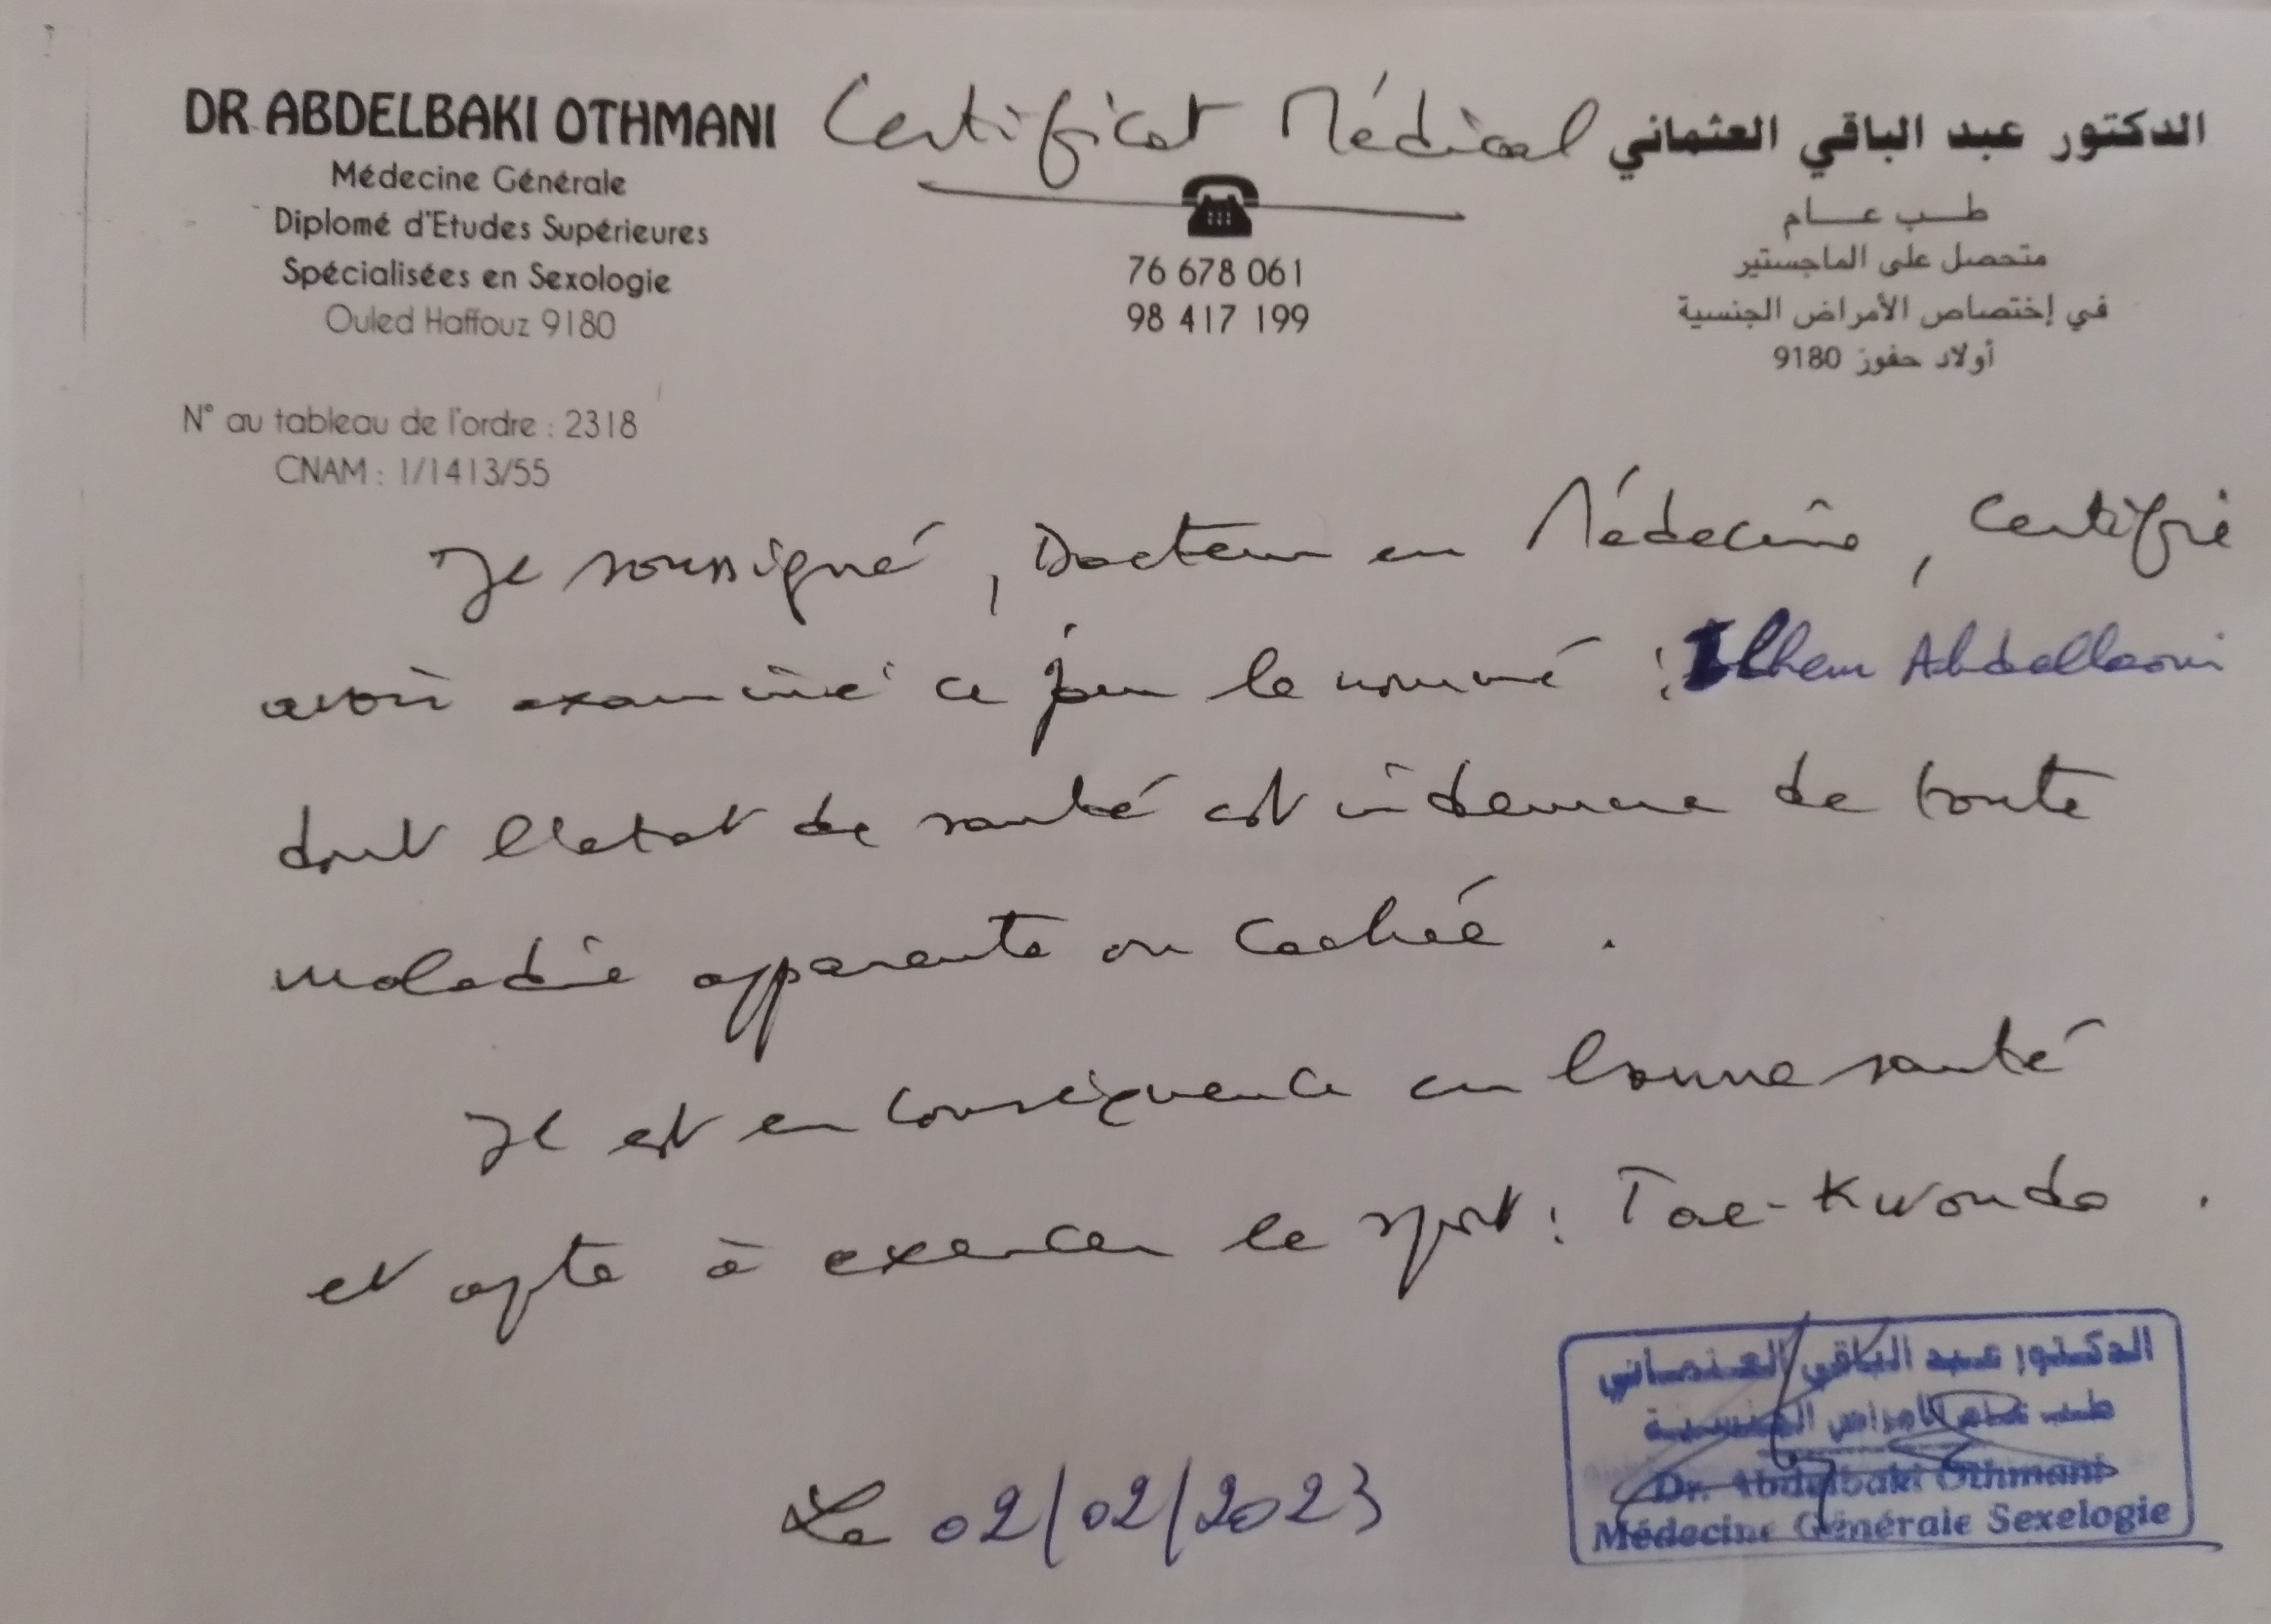 DR ABDELBAKI OTHMANI
Médecine Générale
Diplomé d'Etudes Supérieures
Spécialisées en Sexologie
Ouled Haffouz 9180
N° au tableau de l'ordre : 2318
CNAM : 1/1413/55
Certificat Médical
76 678 061
98 417 199
الدكتور عبد الباقي العثماني
طب عام
متحصل على الماجستير
في إختصاص الأمراض الجنسية
أولاد حفوز 9180
Je soussigné, Docteur en Médecine, Certifie
avoir examiné ce jour le nommé : Ilhem Abdellaoui
dont l'etat de santé est indemne de toute
maladie apparente ou cachée.
Il est en conséquence en bonne santé
et apte à exercer le sport : Tae-Kwondo.
Le 02/02/2023
الدكتور عبد الباقي العثماني
طب عام الأمراض الجنسية
Dr. Abdelbaki Othmani
Médecine Générale Sexelogie